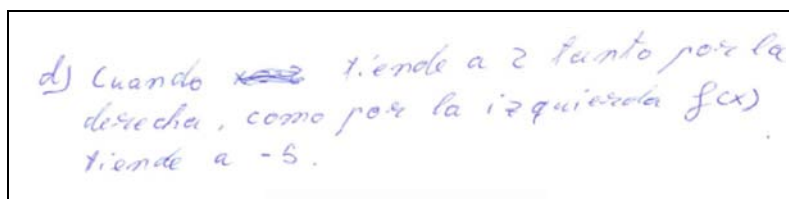 d) Cuando tiende a 2 tanto por la
derecha, como por la izquierda f(x)
tiende a -5.